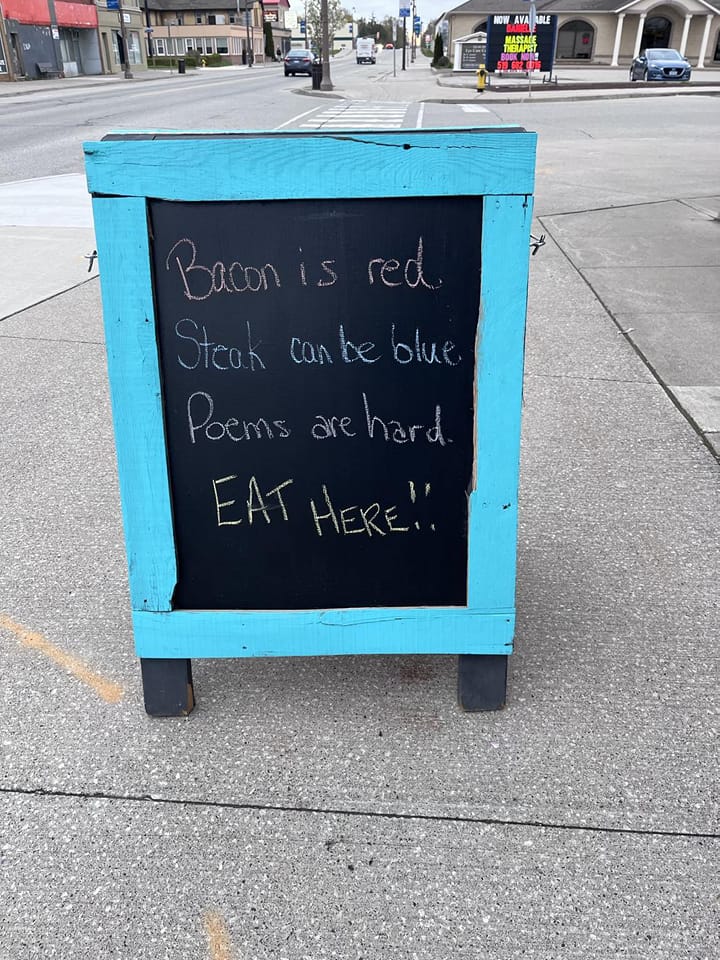 NOW AVAILABLE
DANIELLE
MASSAGE
THERAPIST
BOOK NOW
Bacon is red.
Steak can be blue
Poems are hard.
EAT HERE!!